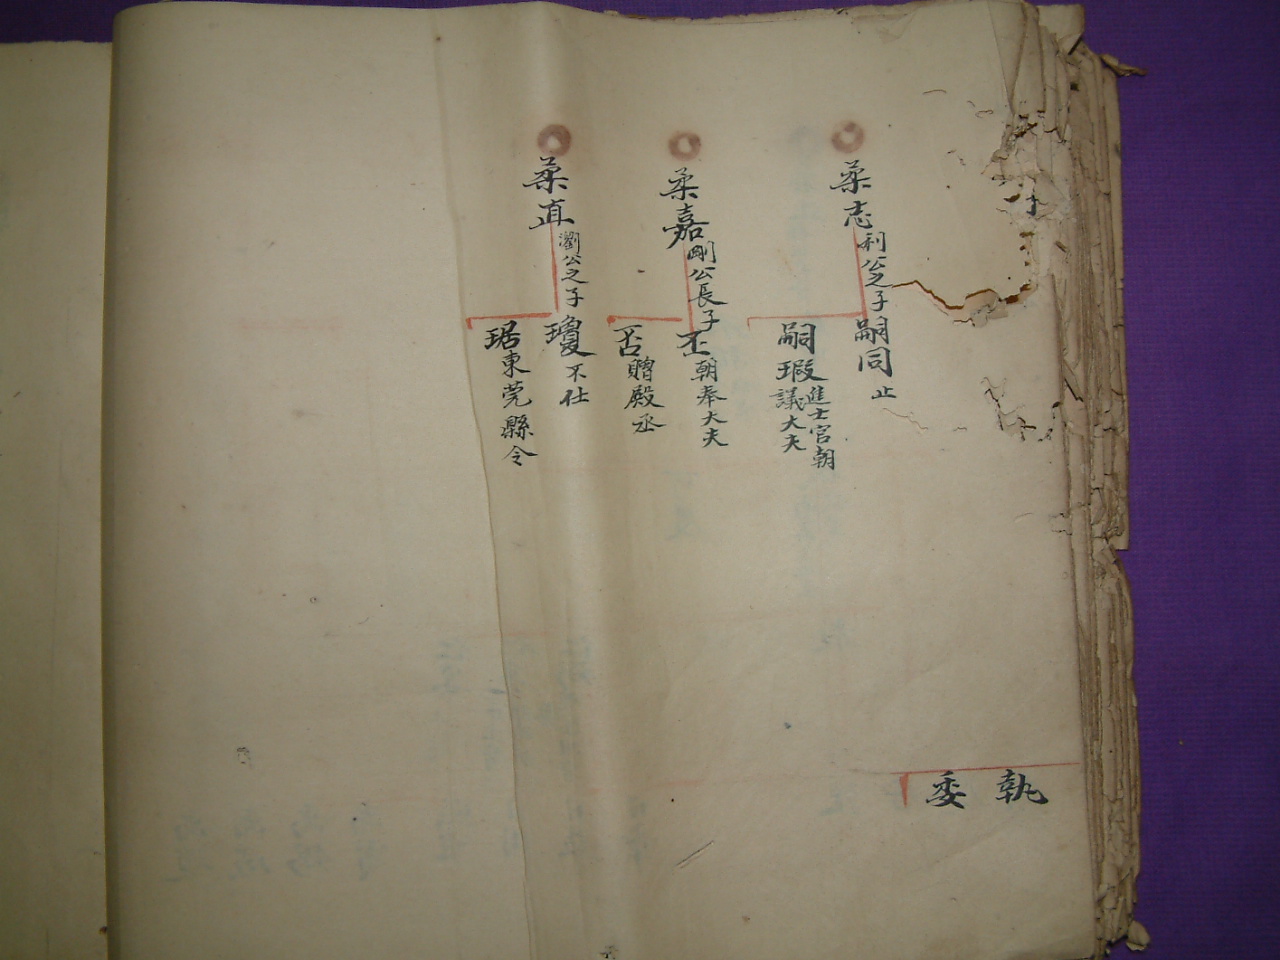 柔志利公之子
嗣同止
嗣瑕進士官朝議大夫
柔嘉剛公長子
丕朝奉大夫
否贈殿丞
柔直瀏公之子
瓊不仕
琚東莞縣令
執
委